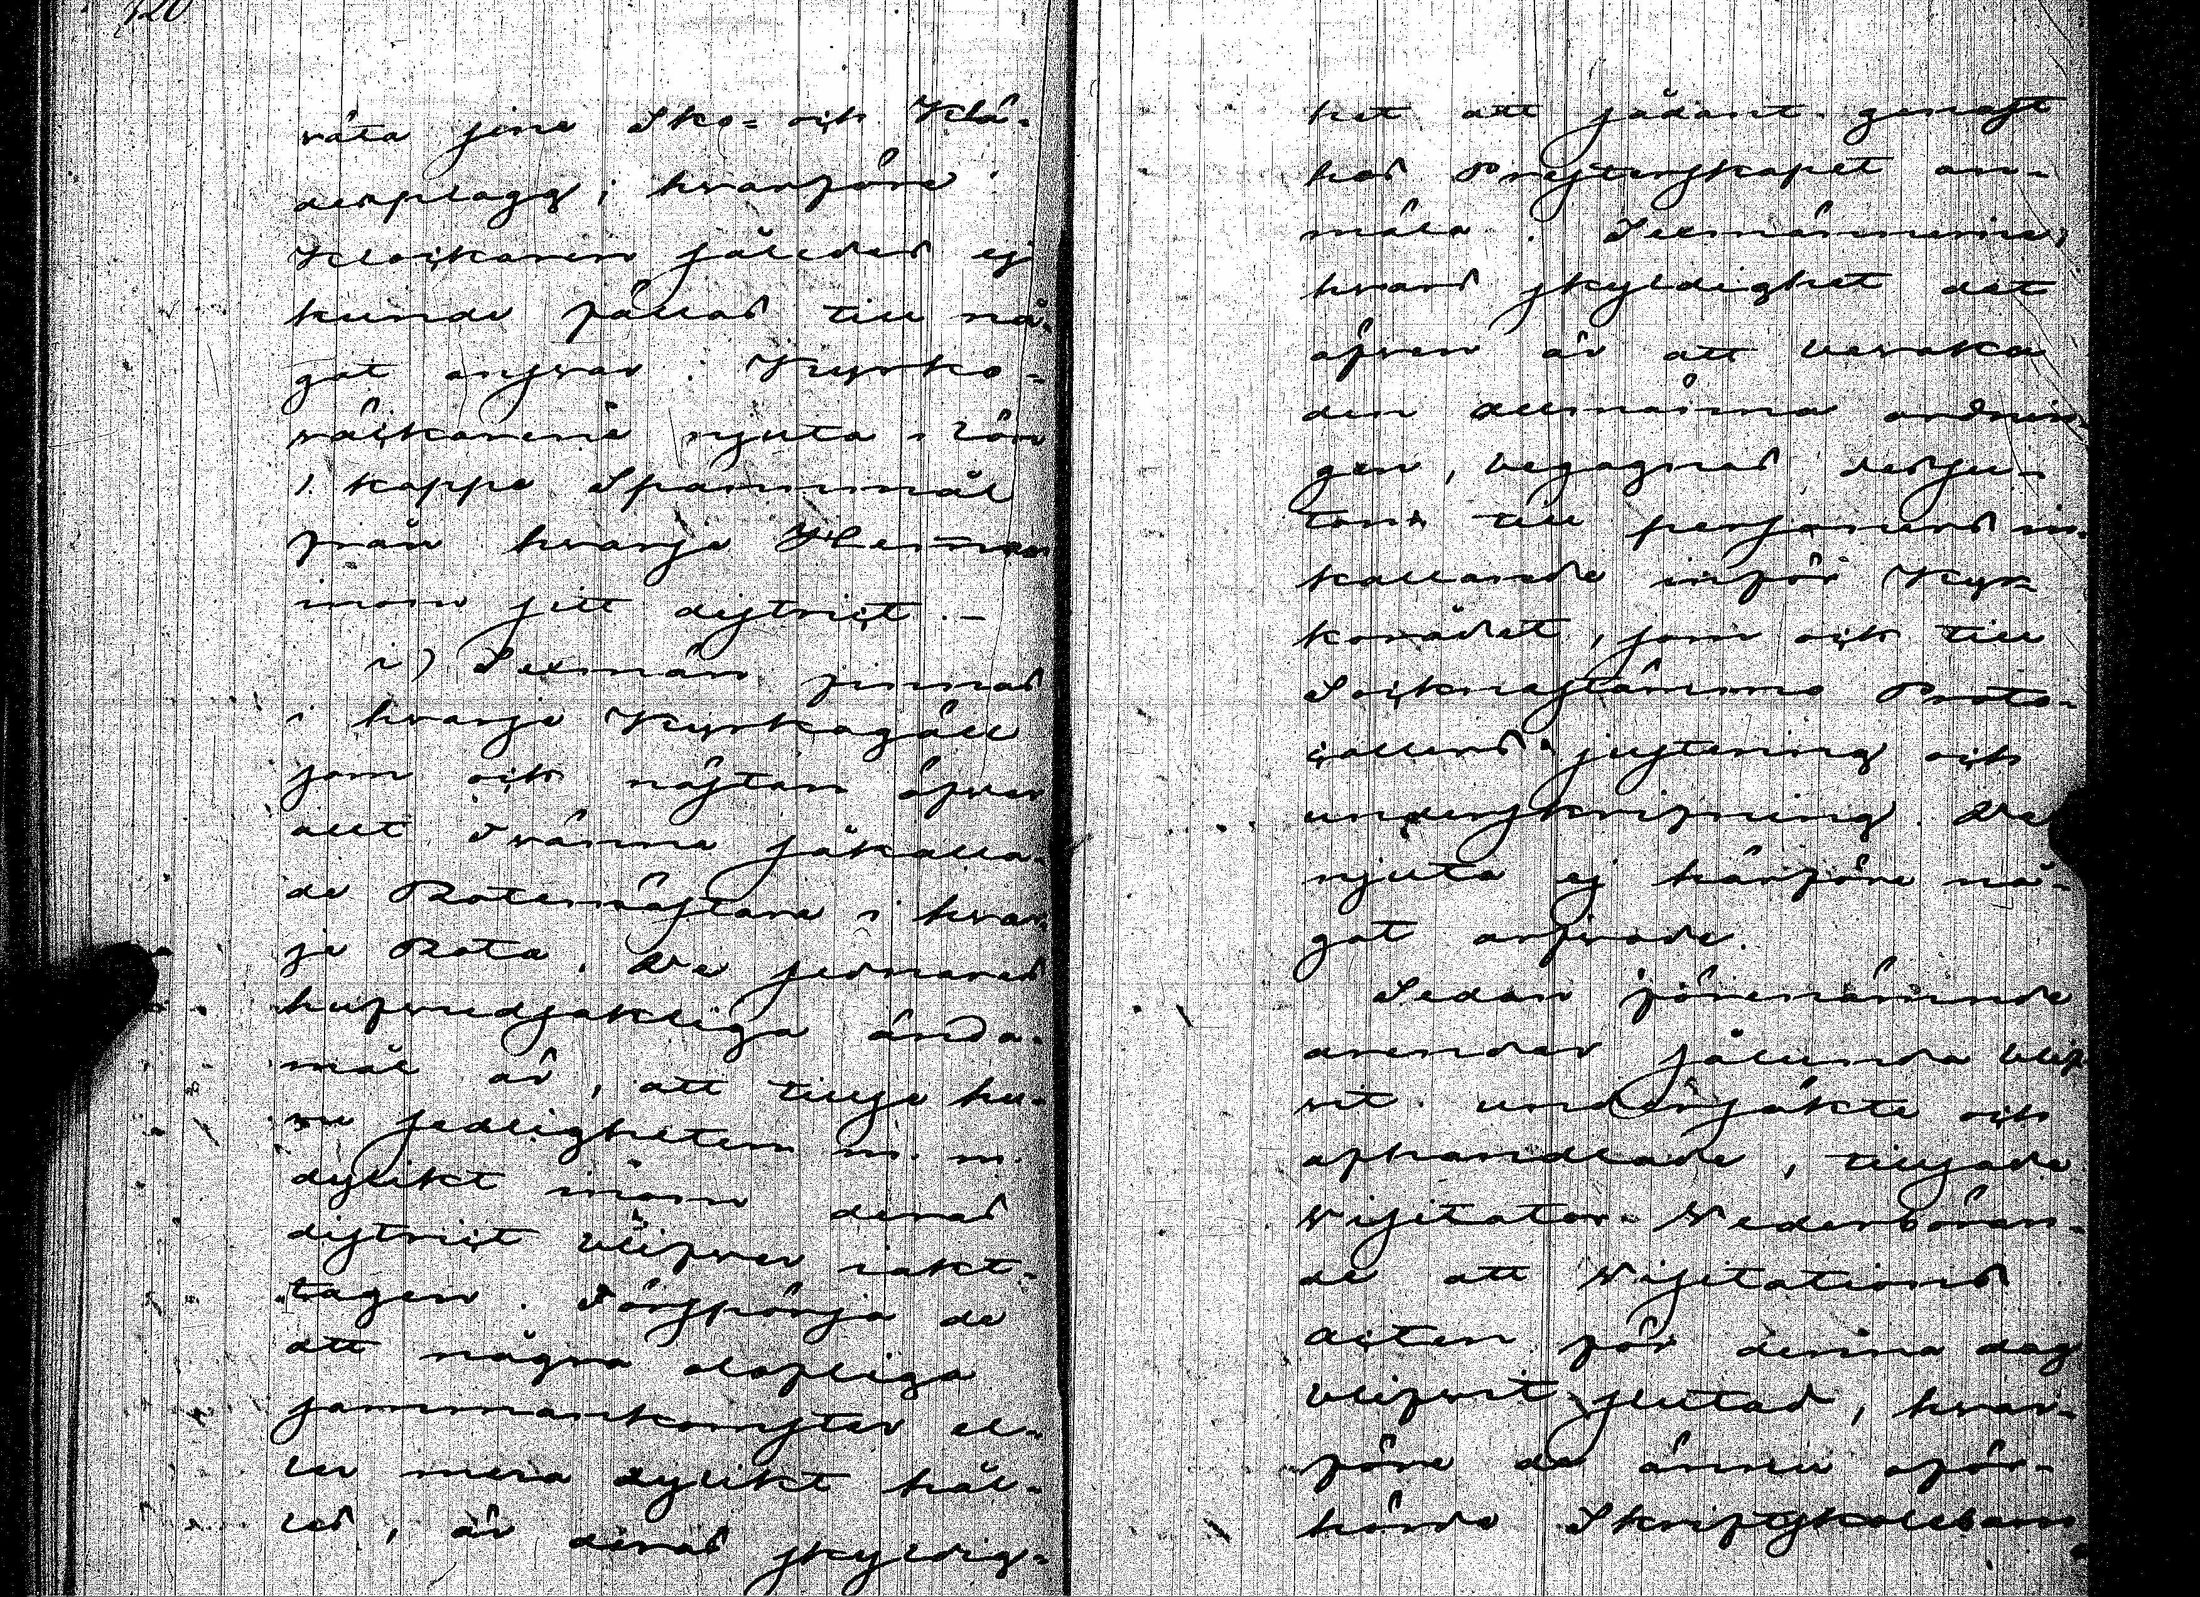 120
råta sine Sko= och Klä-
desplagg; hvarföre
Klockaren således ej
kunde fällas till nå-
got ansvar. Kyrko-
väckarene njuta i lön
1. kappe Spannmål
från hvarje Hemman
inom sitt district. –
i) Sexmän finnas
i hvarje Kyrkogäll
som och nästan öfver
allt tvänne såkalla-
de Rotemästare i hvar-
je Rota. De sednares
hufvudsakliga ända-
mål är, att tillse hu-
ru sedligheten m. m.
dylikt inom deras
district blifver iakt-
tagen. Förspörja de
att några olofliga
sammankomster el-
ler mera dylikt hål-
les, är deras skyldig-
het att sådant genast
hos Presterskapet an-
mäla. Sexmännerne,
hvars skyldighet det
äfven är att bevaka
den allmänna ordnin-
gen, begagnas dessu-
tom till personers in-
kallande inför Kyr-
korådet, som och till
Socknestämmo Proto-
collers justering och
underskrifning. De
njuta ej härföre nå-
got arfvode.
Sedan förenämnde
ärender sålunda blif-
vit undersökte och
afhandlade, tillsade
Visitator Vederböran-
de att Visitations
acten för denna dag
blifvit slutad, hvar-
före de ännu oför-
hörde Skriftskolebarn